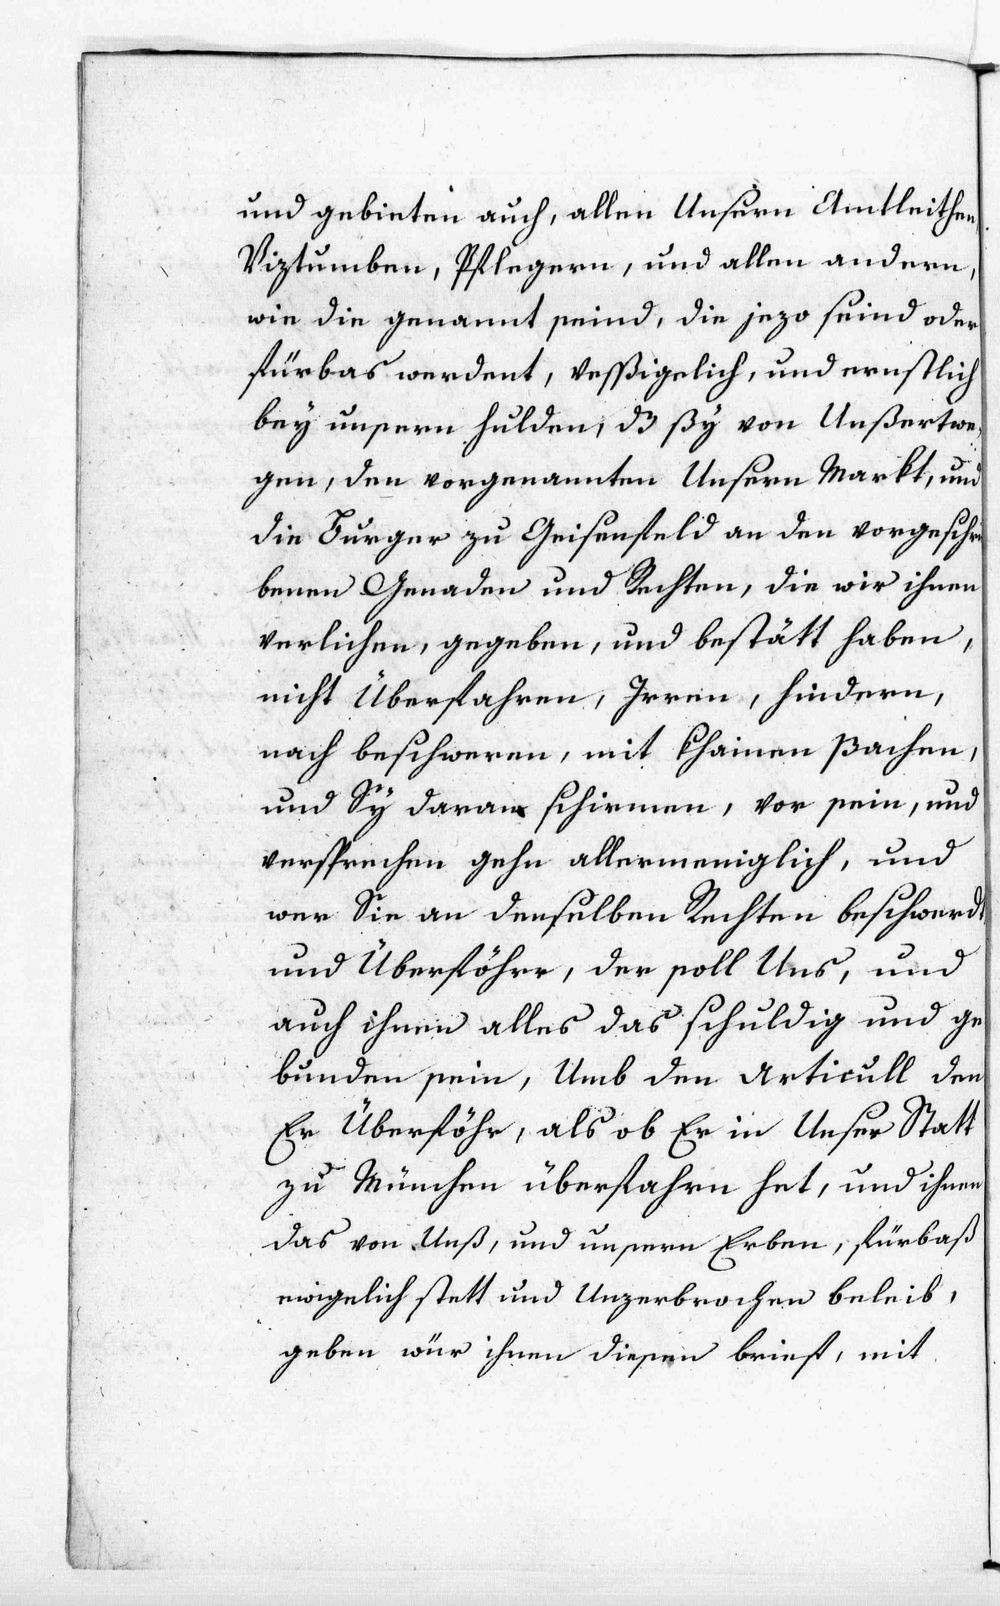 und gebieten auch, allen Unsern Amtleithen
Viztumben, Pflegern, und allen andern,
wie die genannt seind, die jezo seind oder
fürbas werdent, vessigelich, und ernstlich
bey unsern hulden, dz sÿ von Unßertwe,
gen, den vorgenannten Unsern Markt, und
die Burger zu Geisenfeld an den vorgeschri
benen Genaden und Rechten, die wir ihnen
verlichen, gegeben, und bestätt haben,
nicht Überfahren, Irren, hindern,
nach beschweren, mit khainen sachen,
und Sÿ daran schirmen, vor sein, und
versprechen gehn allermeniglich, und
wer Sie an denselben Rechten beschwerdt
und Überföhre, der soll Uns, und
auch ihnen alles das schuldig und ge
bunden sein, Umb den Articull den
Er Überföhr, als ob Er in Unser Statt
zu München überfahrn het, und ihnen
das von Unß, und unsern Erben, fürbaß
ewigelich stett und Unzerbrochen beleib,
geben wür ihnen diesen brief, mit